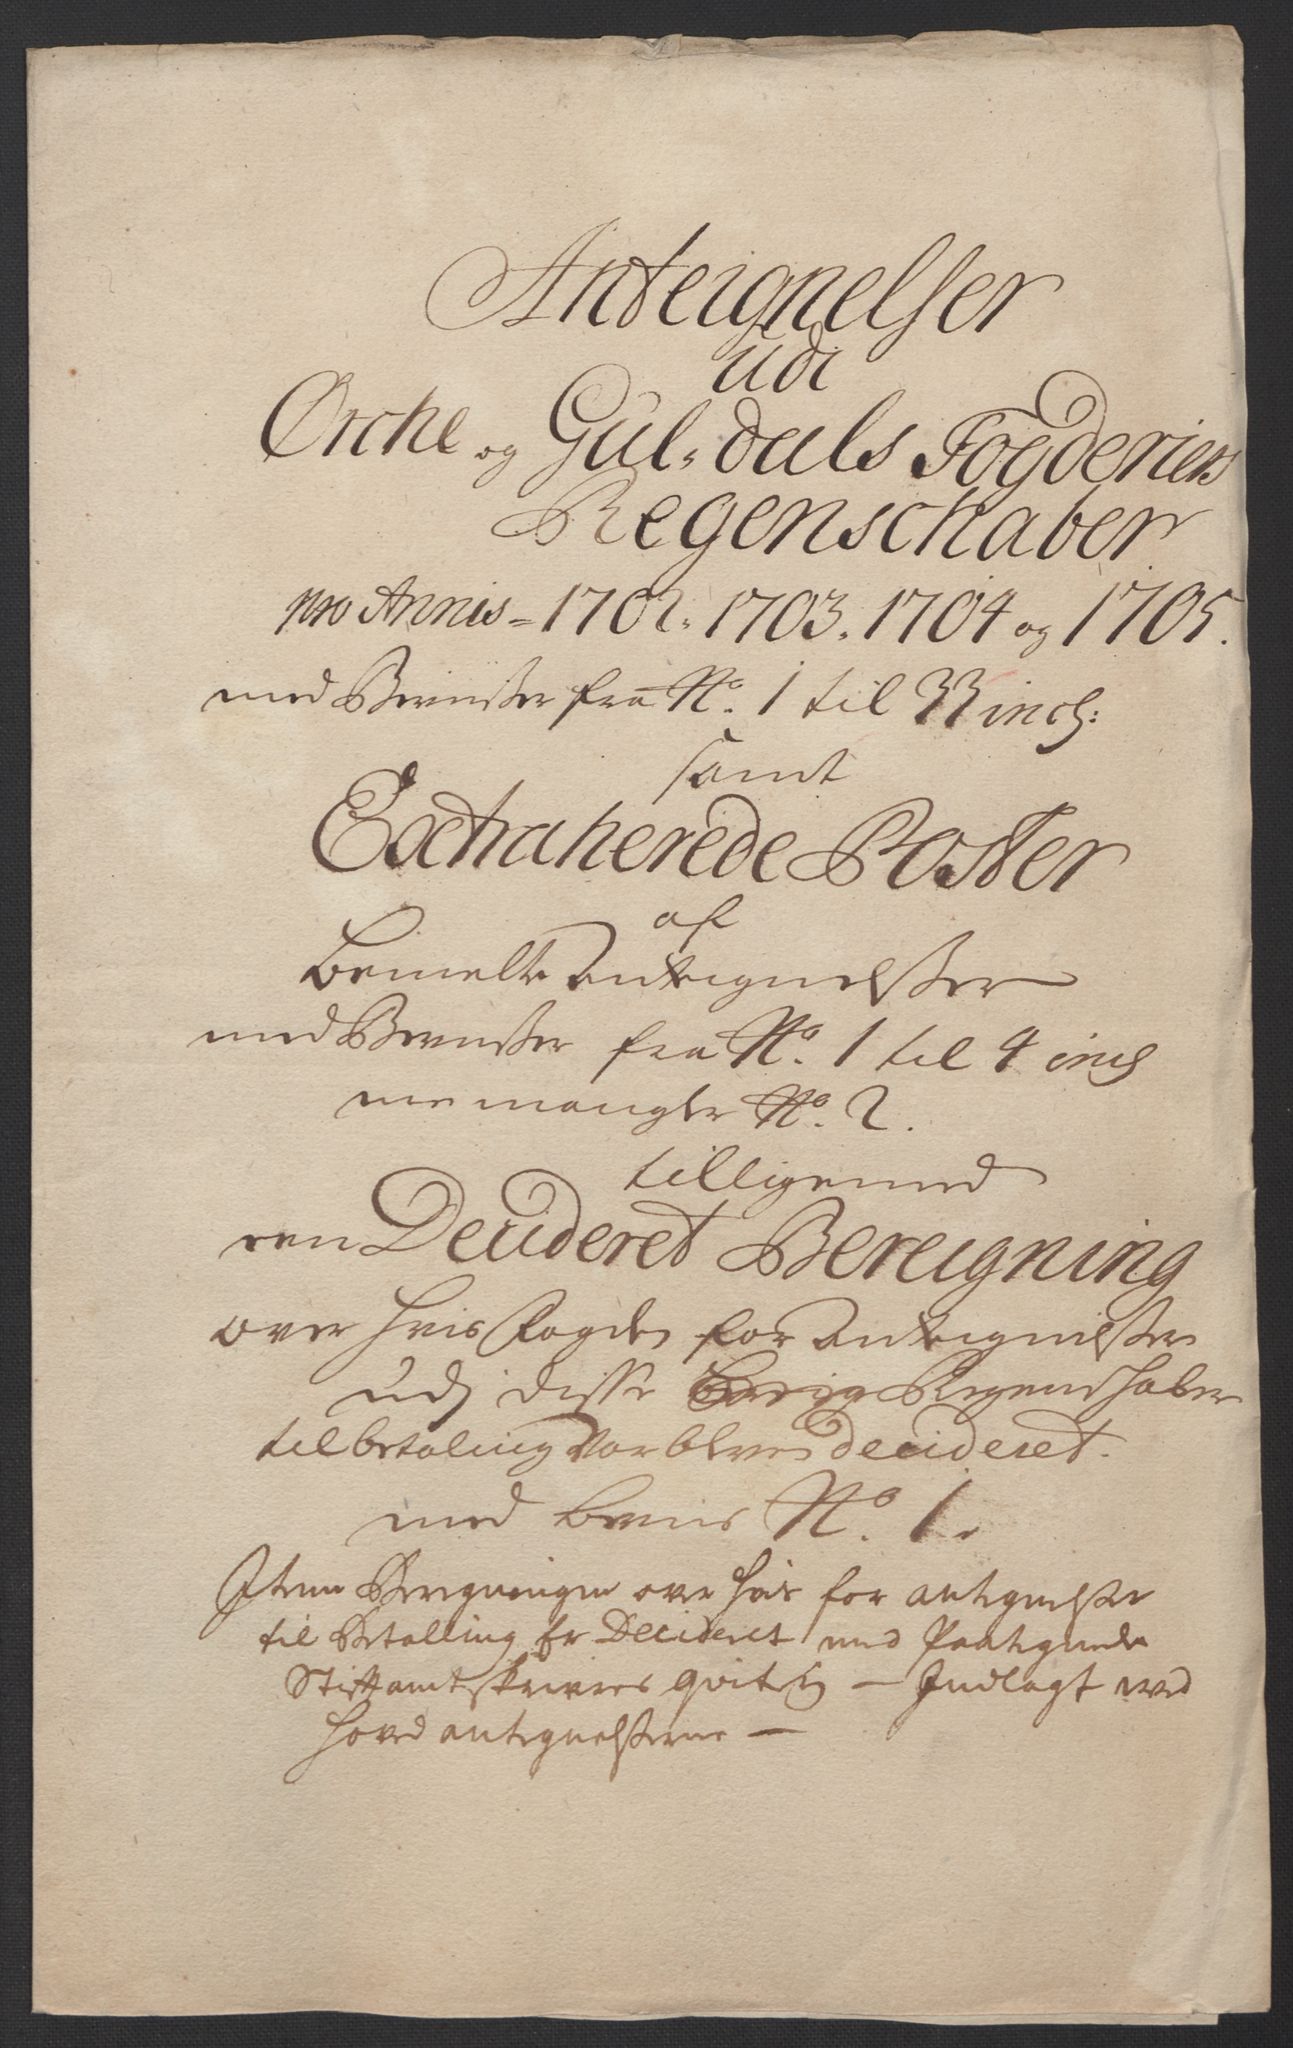 Anteignelser
udi
Orche og Gul-dals Fogderiers
Regenschaber
pro Annis = 1702. 1703. 1704 og 1705.
med Beviisser fra No. 1 til 33 incl:
samt
Extraherede Poster
af
bemelte Anteignelsser
med Bevisser fra No. 1 til 4 incl
men mangler No. 2.
tilligemed
een Decideret Bereigning
over hvis Fogden for Anteignelsser
udj disse Regenschaber
til betaling var bleven decideret.
med beviis No. 1.
Item Beregningen over hvis for antegnelsser
til Betalling er Decideret med Paategnede
Stiftamtskrivers qvitering — Indlagt ved
hovedantegnelsserne —